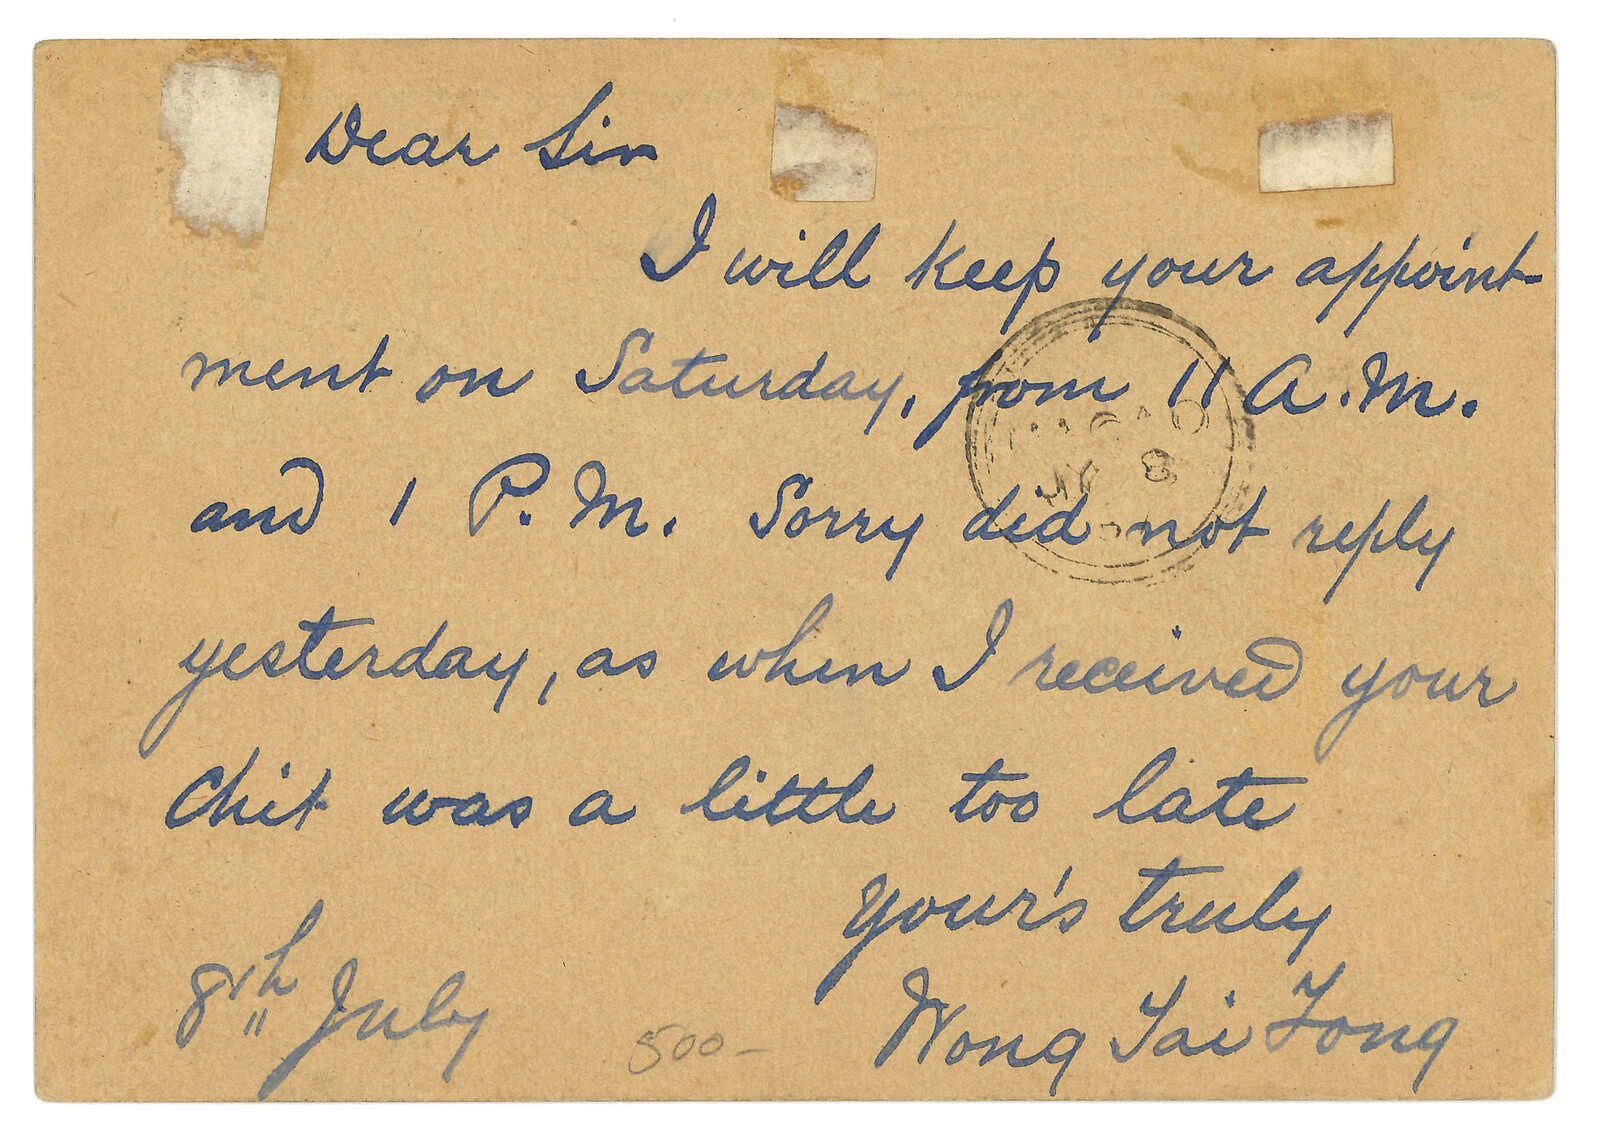 Dear Sir
I will keep your appoint-
ment on Saturday, from 11 A.M.
and 1 P.M. Sorry did not reply
yesterday, as when I received your
chit was a little too late
Your's truly
8th July
Wong Tai Tong
500-
8